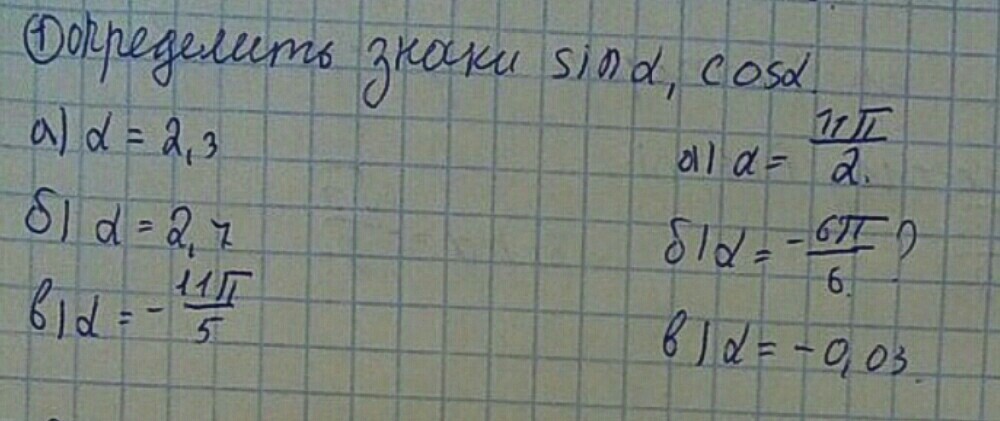 ① определить знаки sin α, cos α
а) α = 2,3
б) α = 2,7
в) α = -11π/5
а) α = 11π/2.
б) α = -6π/6. ?
в) α = -0,03.